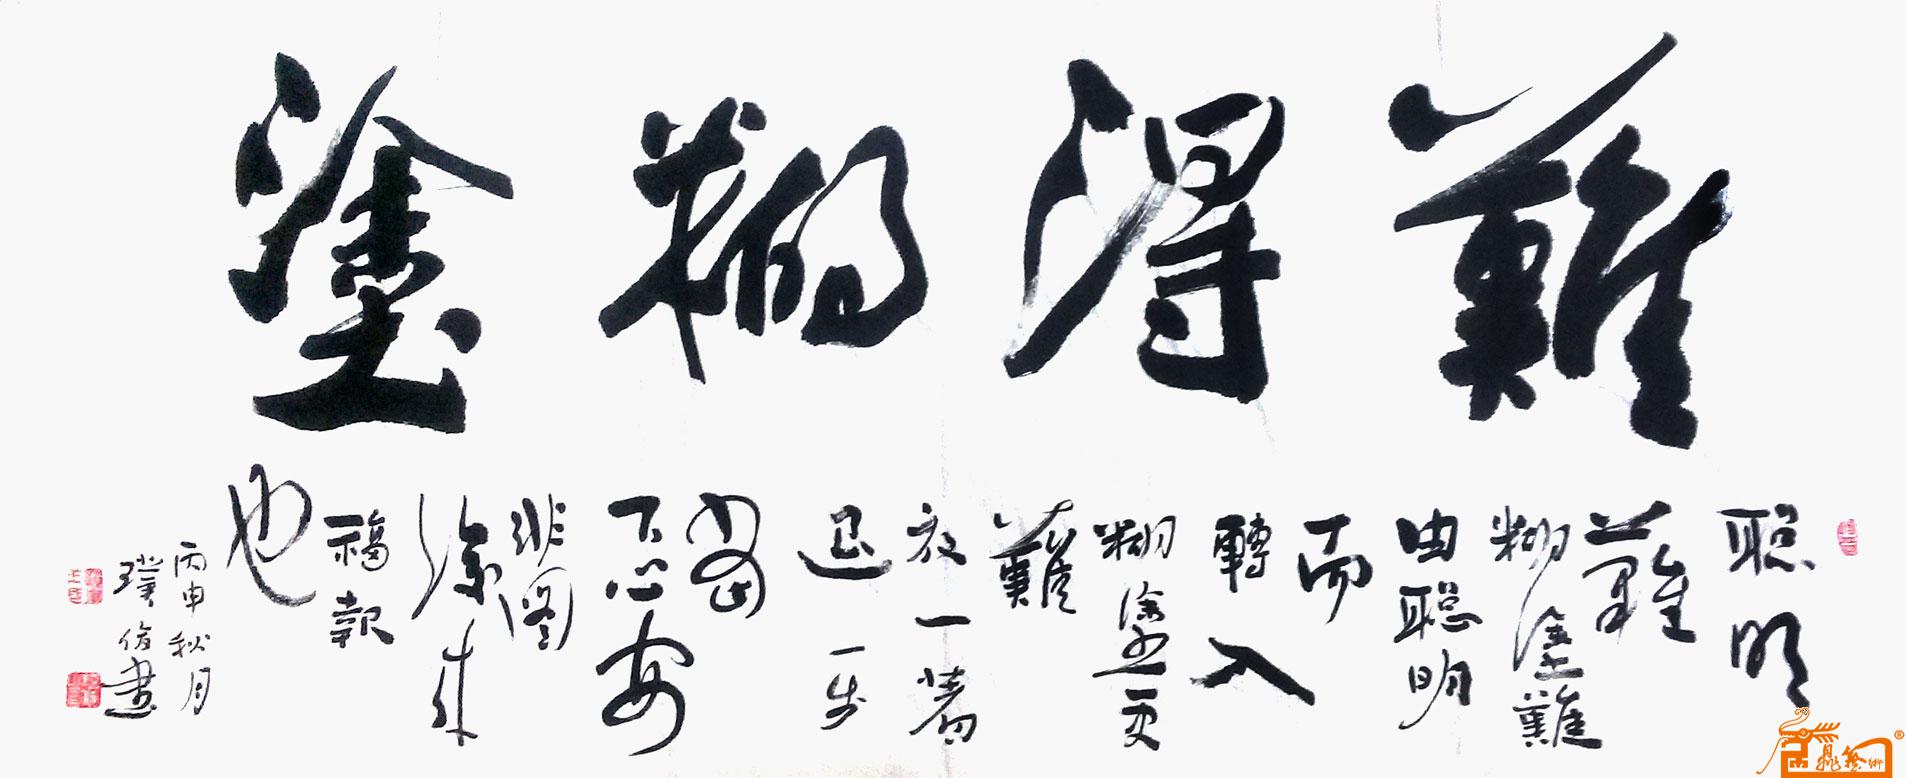 難得糊塗
聪明
難
糊塗難
由聪明
而
轉入
糊塗更
難
放一著
退一步
當
下心安
非圖
後来
福報
也
丙申秋月
璞書